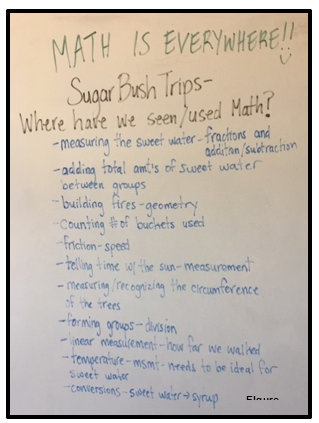 MATH IS EVERYWHERE!!
Sugar Bush Trips-
Where have we seen/used Math?
-measuring the sweet water-fractions and
addition/subtraction
-adding total amt's of sweet water
between groups
-building fires-geometry
-counting # of buckets used
-friction-speed
-telling time w/ the sun-measurement
-measuring/recognizing the circumference
of the trees
-forming groups-division
-linear measurement-how far we walked
-temperature-msmt-needs to be ideal for
sweet water
-conversions-sweet water→syrup